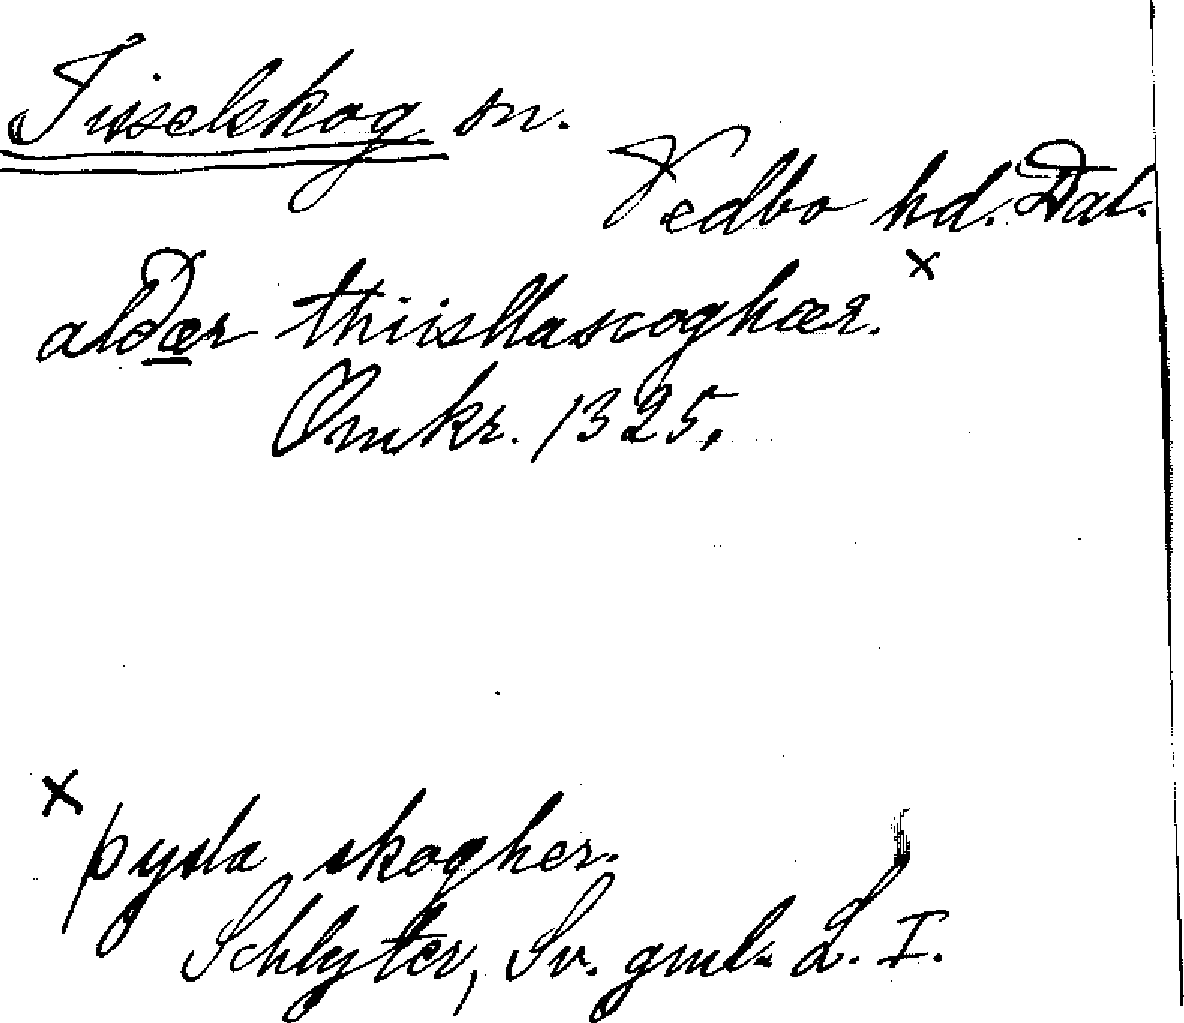 Tisselskog sn.
Vedbo hd. Dal.
aldær thiisllascoghær. x
Omkr. 1325.
x þysla skogher.
Schlyter, Sv. gml. L. I.